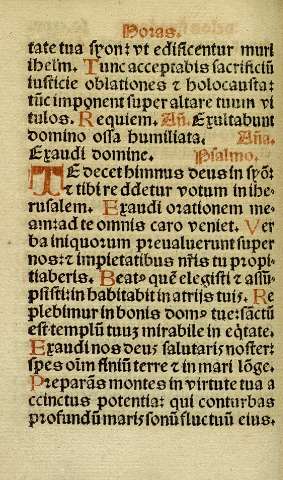 Horas.
tate tua syon: vt edificentur muri
ihelm. Tunc acceptabis sacrificiũ
iusticie oblationes & holocausta:
tũc imponent super altare tuum vi
tulos. Requiem. Añ. Exultabunt
domino ossa humiliata. Aña.
Exaudi domine. Psalmo.
TE decet himnus deus in syõ:
& tibi reddetur votum in ihe-
rusalem. Exaudi orationem me-
am: ad te omnis caro veniet. Ver
ba iniquorum preualuerunt super
nos: & impietatibus nr̃is tu propi-
tiaberis. Beatꝰ quẽ elegisti & assũ-
psisti: inhabitabit in atrijs tuis. Re
plebimur in bonis domꝰ tue: sãctũ
est templũ tuuz mirabile in eq̃tate.
Exaudi nos deus salutaris noster:
spes oĩm finiũ terre & in mari lõge.
Preparãs montes in virtute tua a
ccinctus potentia: qui conturbas
profundũ maris sonũ fluctuũ eius.